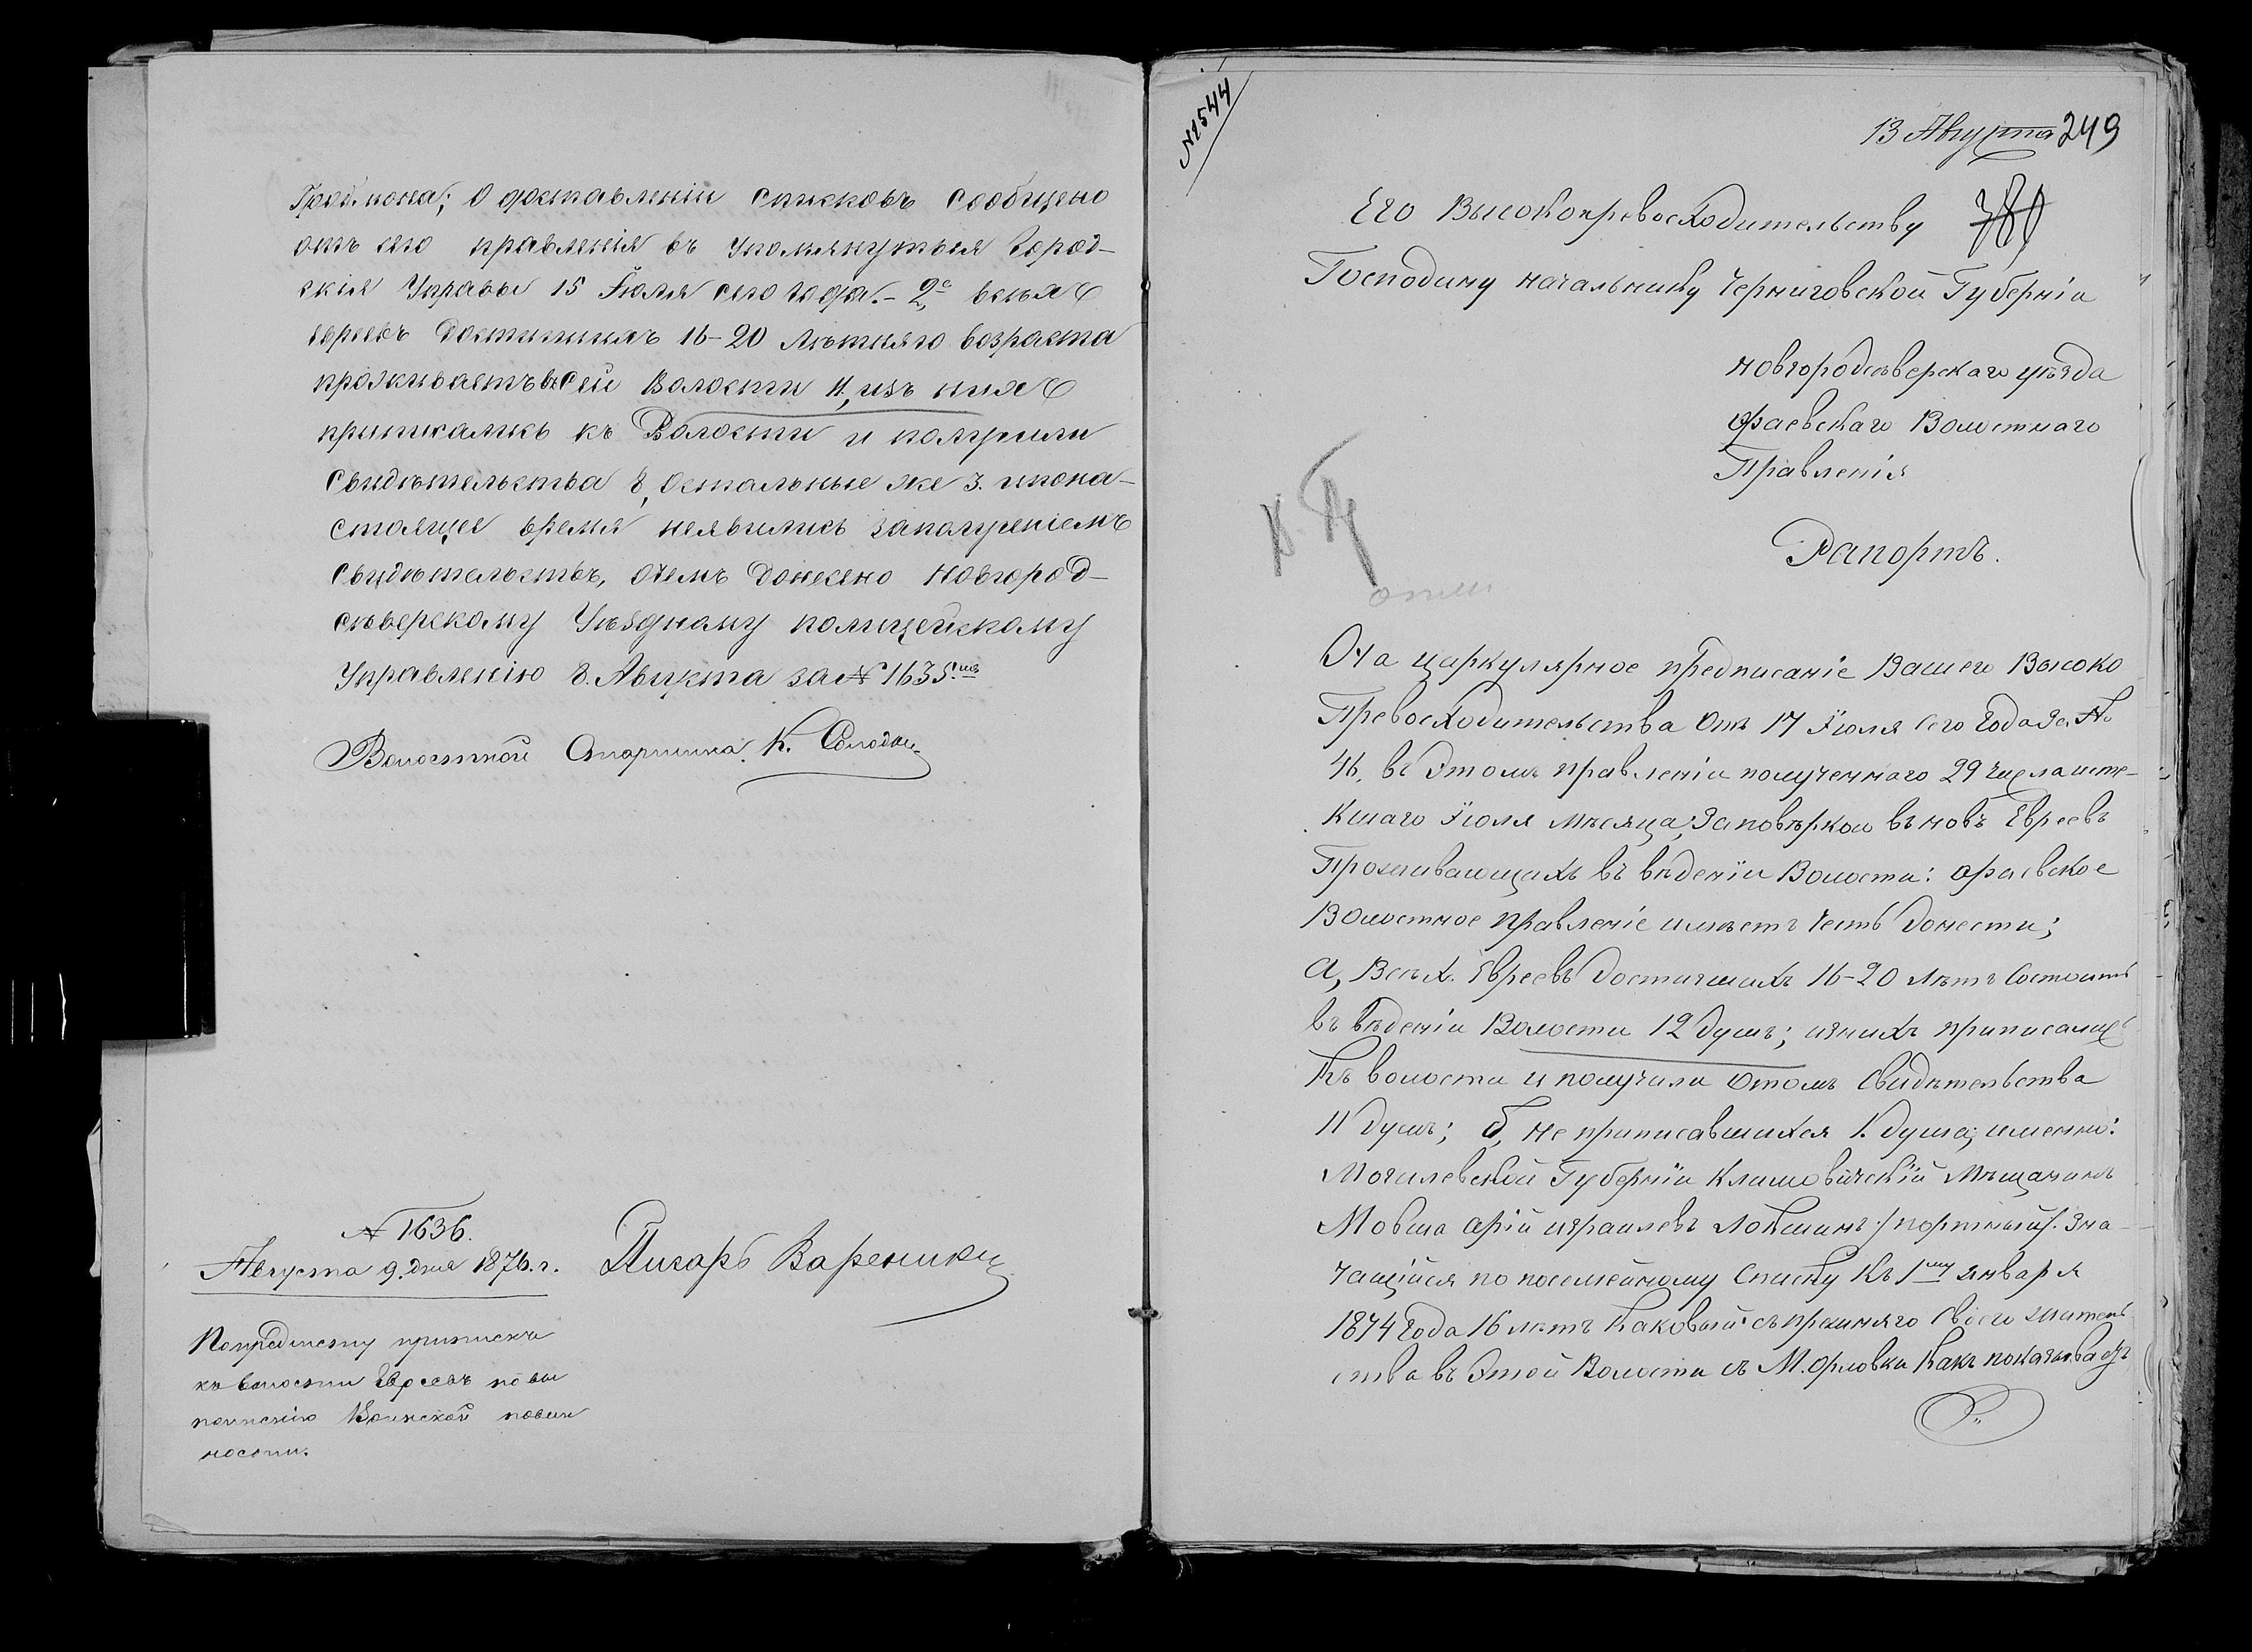 о доставленіи списковъ сообщено
отъ сего правленія въ упомянутыя город-
скія Управы 15 Іюля сего года. – 2е, всѣхъ
евреевъ достигшихъ 16–20 лѣтняго возраста
проживаетъ въ сей Волости 11, изъ нихъ
приписались къ Волости и получили
свидѣтельства 8, остальные же 3. и по на-
стоящее время неявились за полученіемъ
свидѣтельствъ, о чемъ донесено Новгород-
сѣверскому Уѣздному полицейскому
Управленію 8. Августа за № 1635.мъ
Волостной Старшина К.
№ 1636.
Августа 9. дня 1876. г.
Писарь
По предмету приписки
къ волости Евреевъ по вы
полненію Воинской повин
ности.
№ 1544
13 Августа 249
780
Его Высокопревосходительству
Господину начальнику Черниговской Губерніи
Новгородсѣверскаго уѣзда
Фаевскаго Волостнаго
Правленія
Рапортъ.
На циркулярное предписаніе Вашего Высоко
Превосходительства отъ 17 Іюля сего года за №
46, въ этомъ правленіи полученнаго 29 числа исте-
кшаго Іюля мѣсяца, За повѣркою вновь Евреевъ
Проживающихъ въ вѣденіи Волости: Фаевское
Волостное правленіе имѣетъ честь донести;
А, Всѣхъ Евреевъ достигшихъ 16–20 лѣтъ состоитъ
въ вѣденіи Волости 12 душъ; изнихъ приписались
къ волости и получили отомъ свидѣтельства
11 душъ; б, не приписавшихся 1. душа, именно:
Могилевской Губерніи Климовичскій мѣщанинъ
Мовша Арій Израилевъ /портный/. Зна-
чащійся по посемейному списку къ 1му января
1874 года 16 лѣтъ каковый съ прежняго своего жител
ства въ этой Волости съ М. Орловки какъ показываетъ